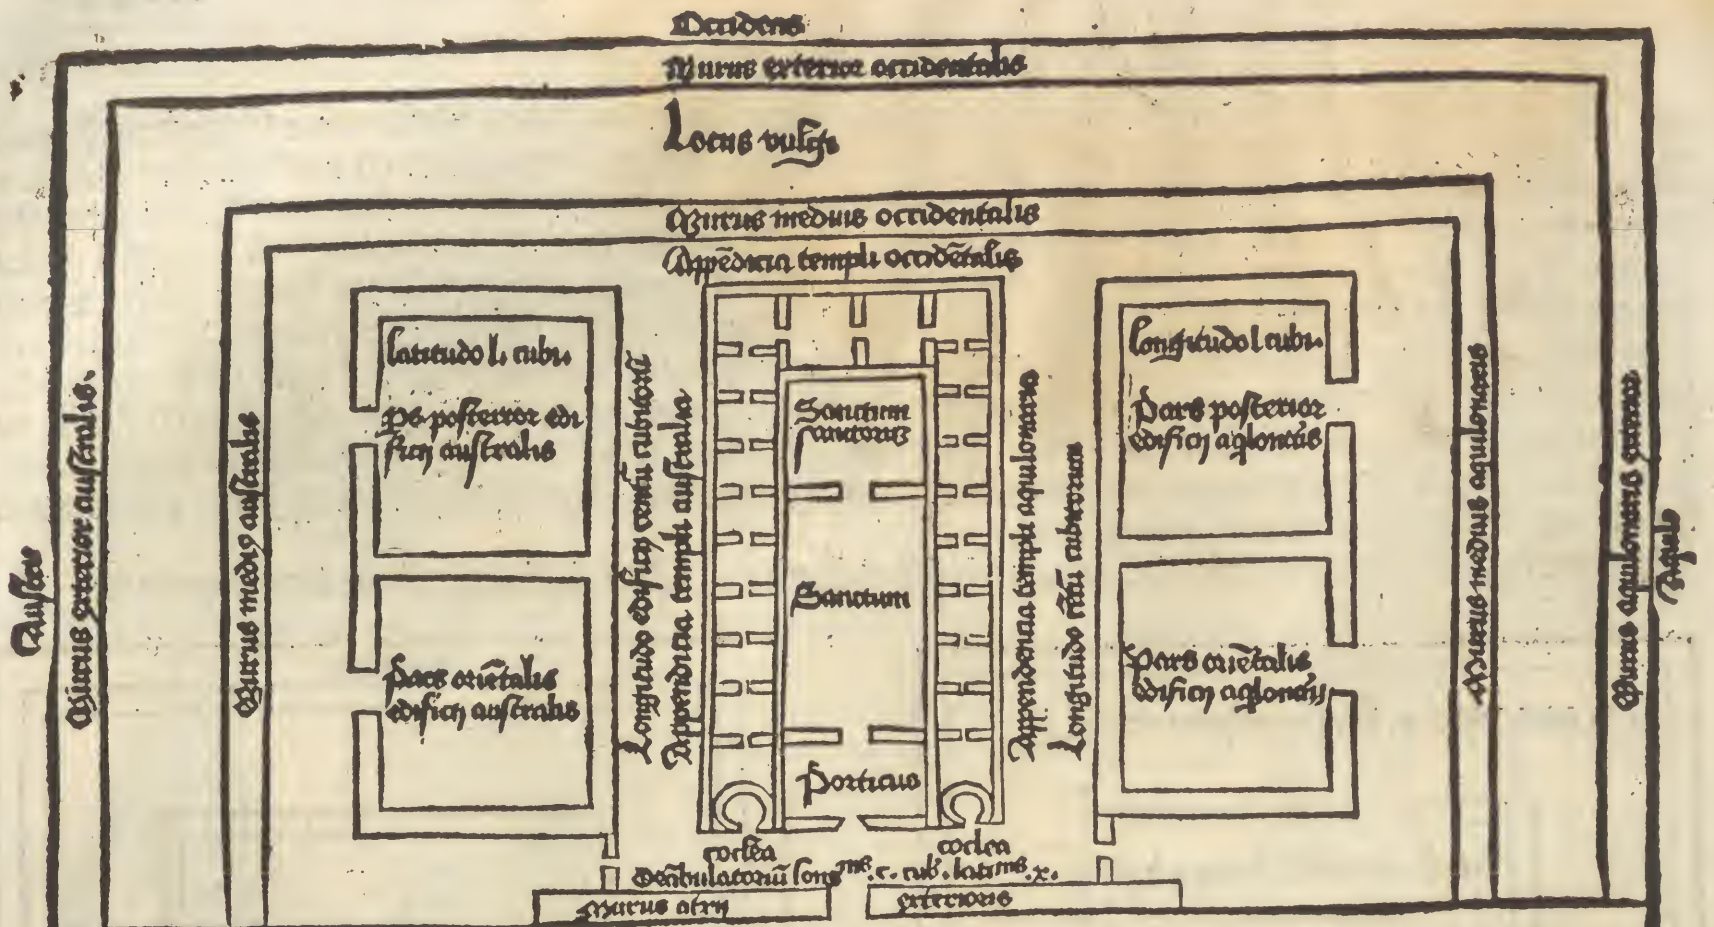 Occidens
Murus exterior occidentalis
Locus vulgi
Murus medius occidentalis
Appēdicia templi occidētalis
latitudo l. cubi.
Ps posterior edi
ficij australis
Pars oriētalis
edificij australis
Auster
Murus exterior australis.
Murus medius australis
Longitudo edificij centū cubitorū
Appendicia templi australia
Sanctum
sanctorum
Sanctum
Porticus
coclea
coclea
Appendicia templi aquilonaria
Longitudo cētū cubitorum
longitudo l cubi.
Pars posterior
edificij aqlonaris
Pars oriētalis
edificij aqlonaris
Murus medius aquilonaris
Murus aquilonaris exterior
Aquilo
Deābulatoriū longms .c. cub. latims .x.
Murus atrij
exterioris